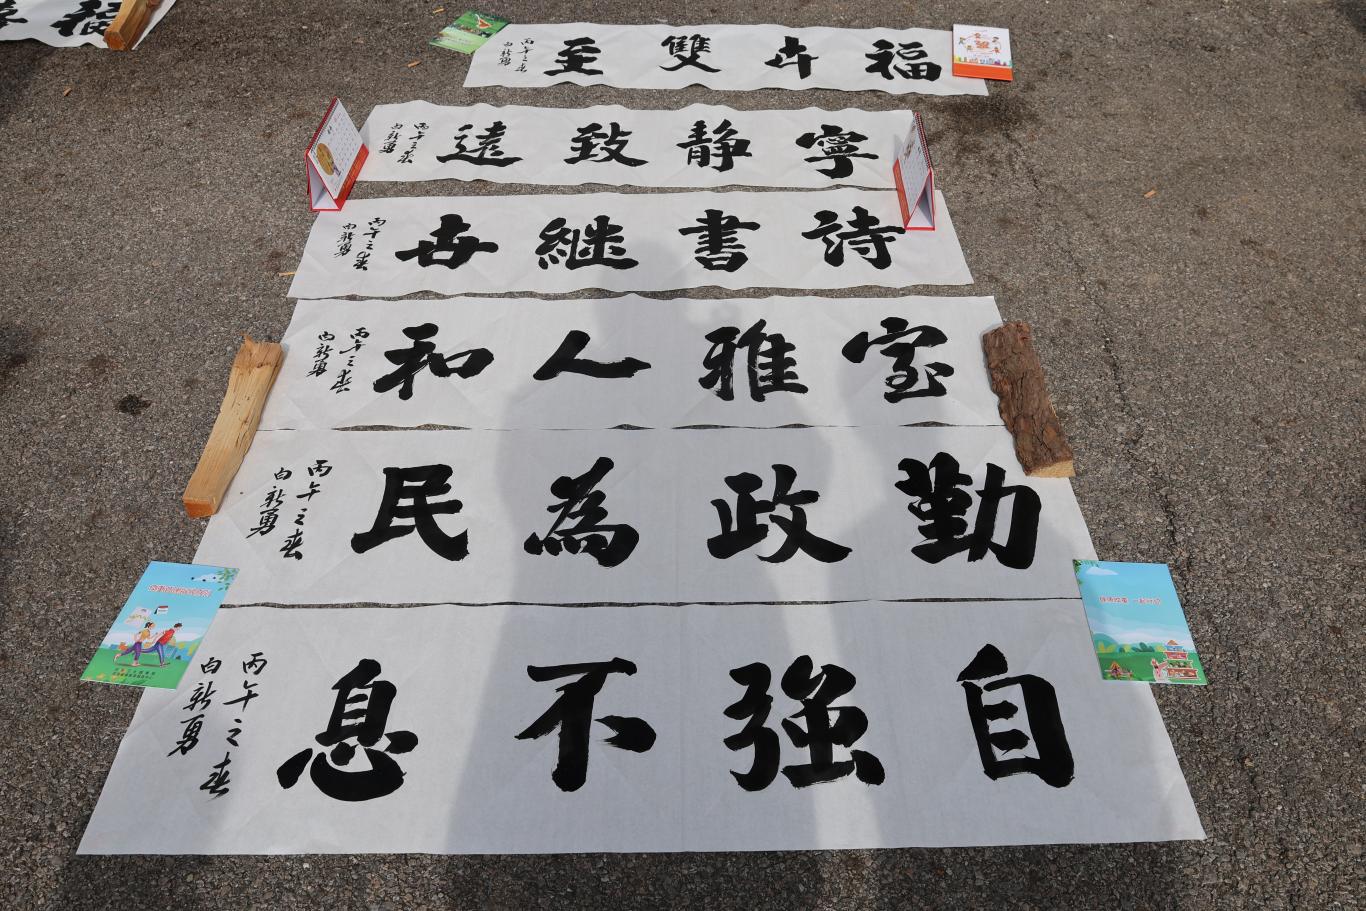 福
福卉雙至
丙午之春
白新勇
寧静致遠
丙午之春
白新勇
詩書繼世
丙午之春
白新勇
室雅人和
丙午之春
白新勇
勤政為民
丙午之春
白新勇
自強不息
丙午之春
白新勇